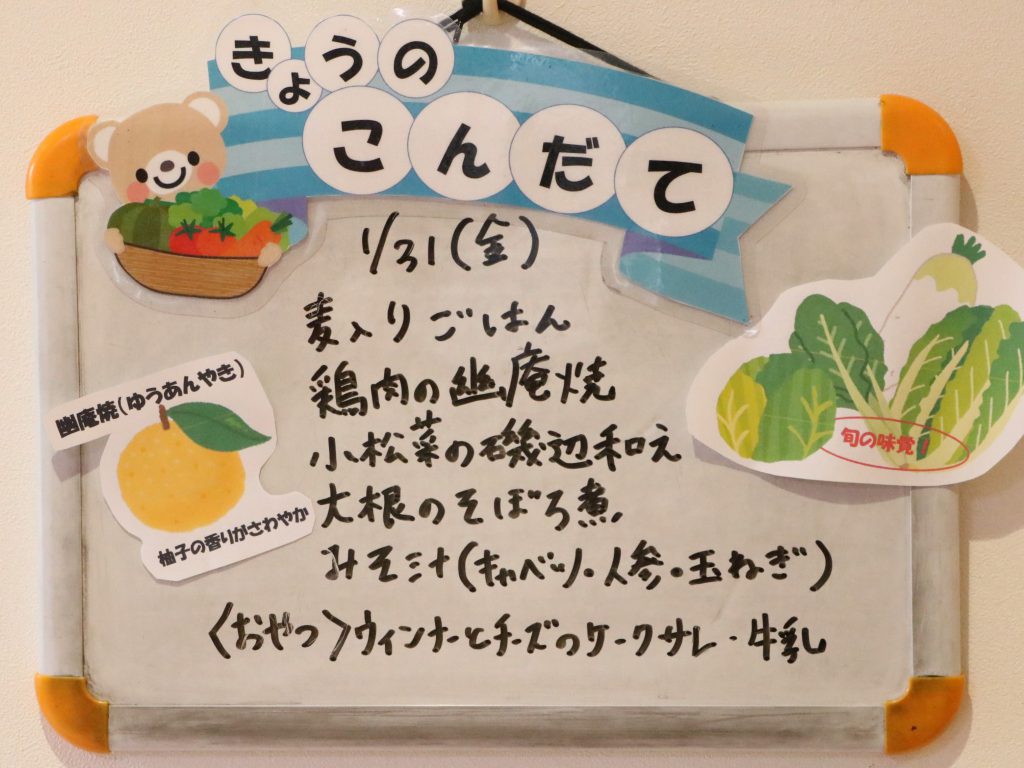 きょうの
こんだて
1/31(金)
麦入りごはん
鶏肉の幽庵焼
小松菜の磯辺和え
大根のそぼろ煮
みそ汁(キャベツ・人参・玉ねぎ)
〈おやつ〉ウィンナーとチーズのケークサレ・牛乳
幽庵焼(ゆうあんやき)
柚子の香りがさわやか
旬の味覚!